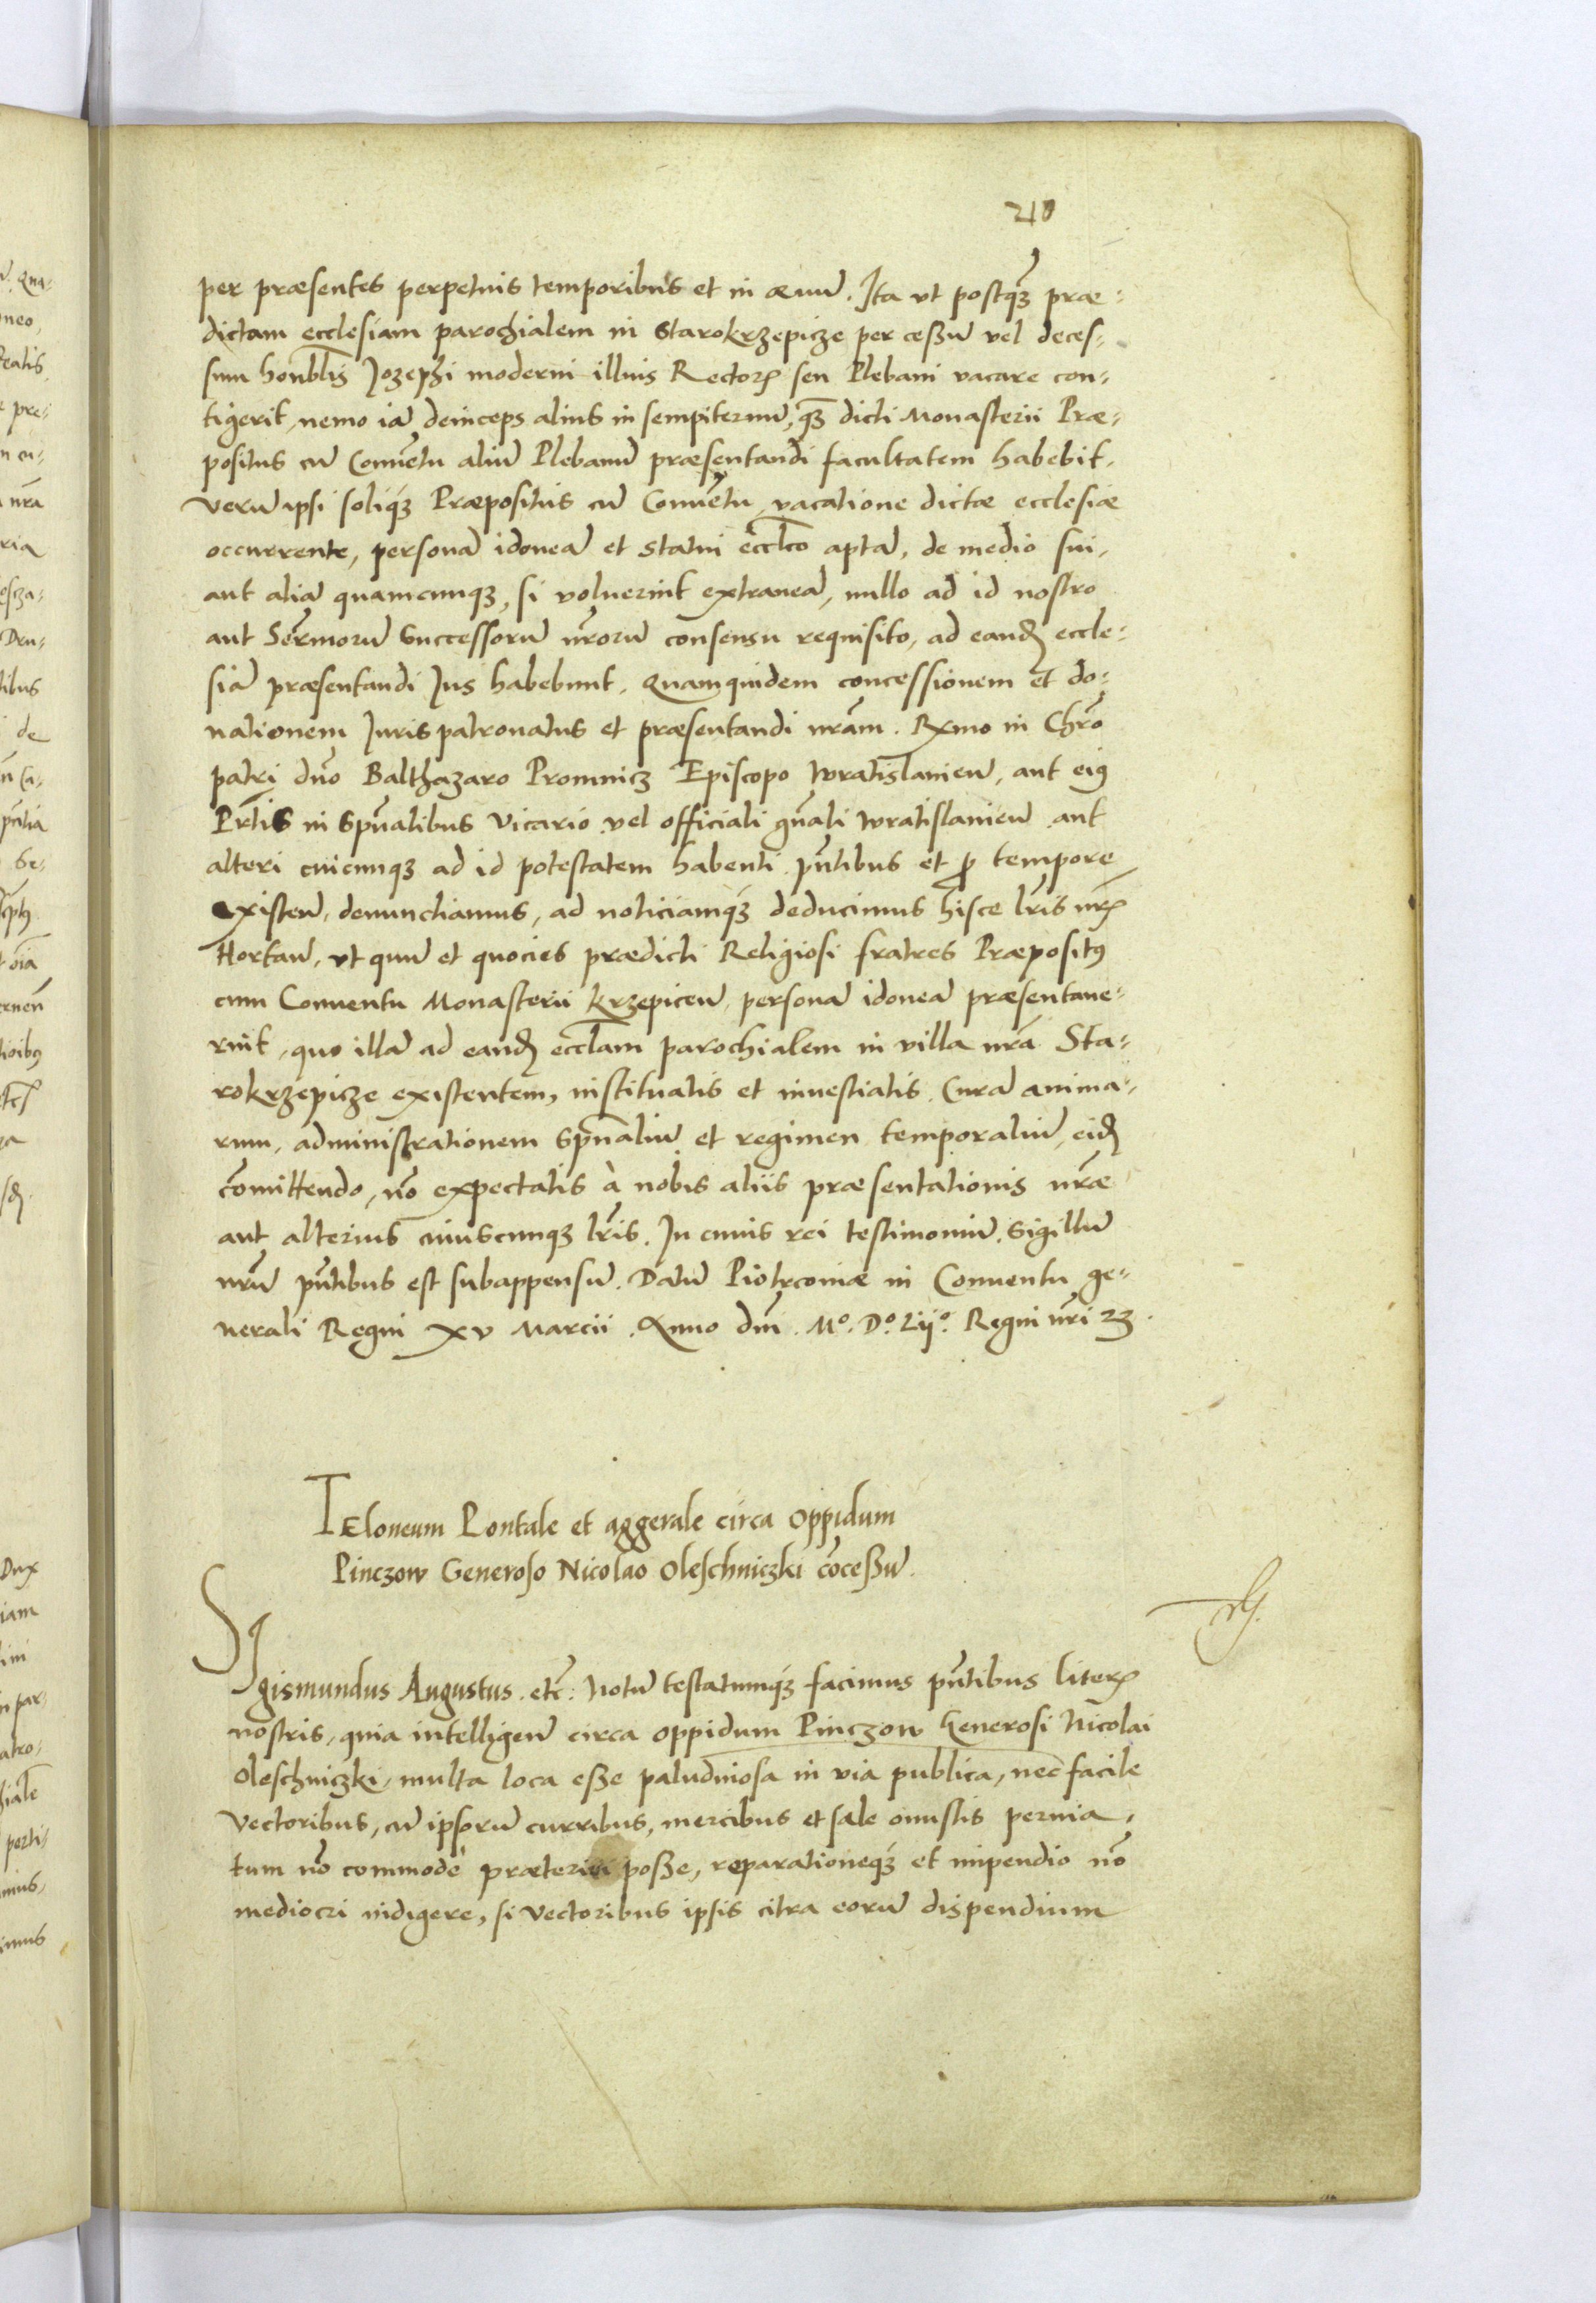 210
per præsentes perpetuis temporibus et in æuũ. Ita vt postq̃ præ-
dictam ecclesiam parochialem in Starokrzepicze per ceßũ vel deces-
sum honb̃lis Jozephi moderni illius Rectoꝝ seu Plebani vacare con-
tigerit, nemo iã deinceps alius in sempiternũ, q̃ dicti Monasterii Præ-
positus cũ Conuẽtu aliũ Plebanũ præsentandi facultatem habebit.
verũ ipsi soliqꝫ Præpositus cũ Conuẽtu, vacatione dictæ ecclesiæ
occurrente, personã idoneã et statui eccl̃co aptã, de medio sui,
aut aliã quamcunqꝫ, si voluerint extraneã, nullo ad id nostro
aut Serm̃orũ Successorũ nr̃orũ consensu requisito, ad eandẽ eccle-
siã præsentandi Jus habebunt. Quamquidem concessionem et do-
nationem Jurispatronatus et præsentandi nr̃am. Rx̃mo in Chr̃o
patri dño Balthazaro Promnicz Episcopo Wratislauieñ, aut eiꝰ
Pr̃tis in Spũalibus Vicario vel officiali gñali Wratislauieñ aut
alteri cuicunqꝫ ad id potestatem habenti pñtibus et ꝓ tempore
existeñ, denunctiamus, ad noticiamqꝫ deducimus hisce lr̃is nr̃ꝝ
Hortañ, vt quũ et quocies prædicti Religiosi fratres Præpositꝰ
cum Conuentu Monasterii Krzepiceñ personã idoneã præsentaue-
rint, quo illã ad eandẽ eccl̃am parochialem in villa nr̃a Sta-
rokrzepicze existentem, instituatis et inuestiatis. Curã anima-
rum, administrationem Spũaliũ et regimen temporaliũ eidẽ
com̃ittendo, nõ expectatis à nobis aliis præsentationis nr̃æ
aut alterius cuiuscunqꝫ lr̃is. In cuius rei testimoniũ, Sigillũ
nr̃ũ pñtibus est subappensũ. Datũ Piotrcouiæ in Conuentu ge-
nerali Regni xv Marcii. Anno dm̃. Mº. Dº. Lijº. Regni nr̃i 23.
Teloneum Pontale et aggerale circa oppidum
Pinczow Generoso Nicolao Oleschniczki cõceßũ.
Sigismundus Augustus. etc̃: Notũ testatumqꝫ facimus pñtibus literꝝ
nostris, quia intelligeñ circa oppidum Pinczow Generosi Nicolai
Oleschniczki, multa loca eße paludinosa in via publica, nec facile
Vectoribus, cũ ipsorũ curribus, mercibus et sale onustis peruia,
tum nõ commodè præteriri poße, reparationeqꝫ et impendio nõ
mediocri indigere, si Vectoribus ipsis citra eorũ dispendium